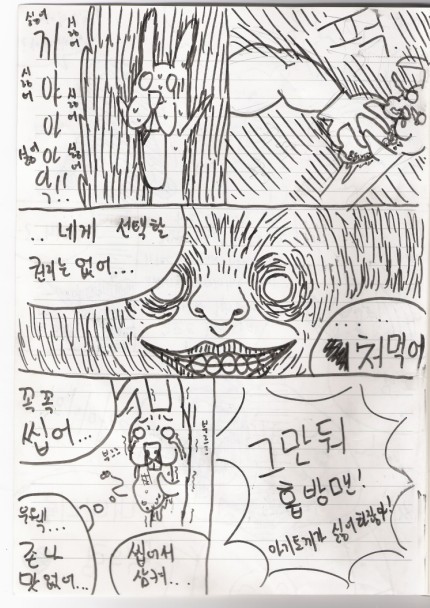 싫어
싫어
기야아아악!!
싫어
싫어
싫어
싫어
.. 네게 선택할
권리는 없어...
......
처먹어
꼭꼭
씹어...
우웩...
존나
맛없어...
씹어서
삼켜...
그만둬
호빵맨!
아기토끼가 싫어하잖아!